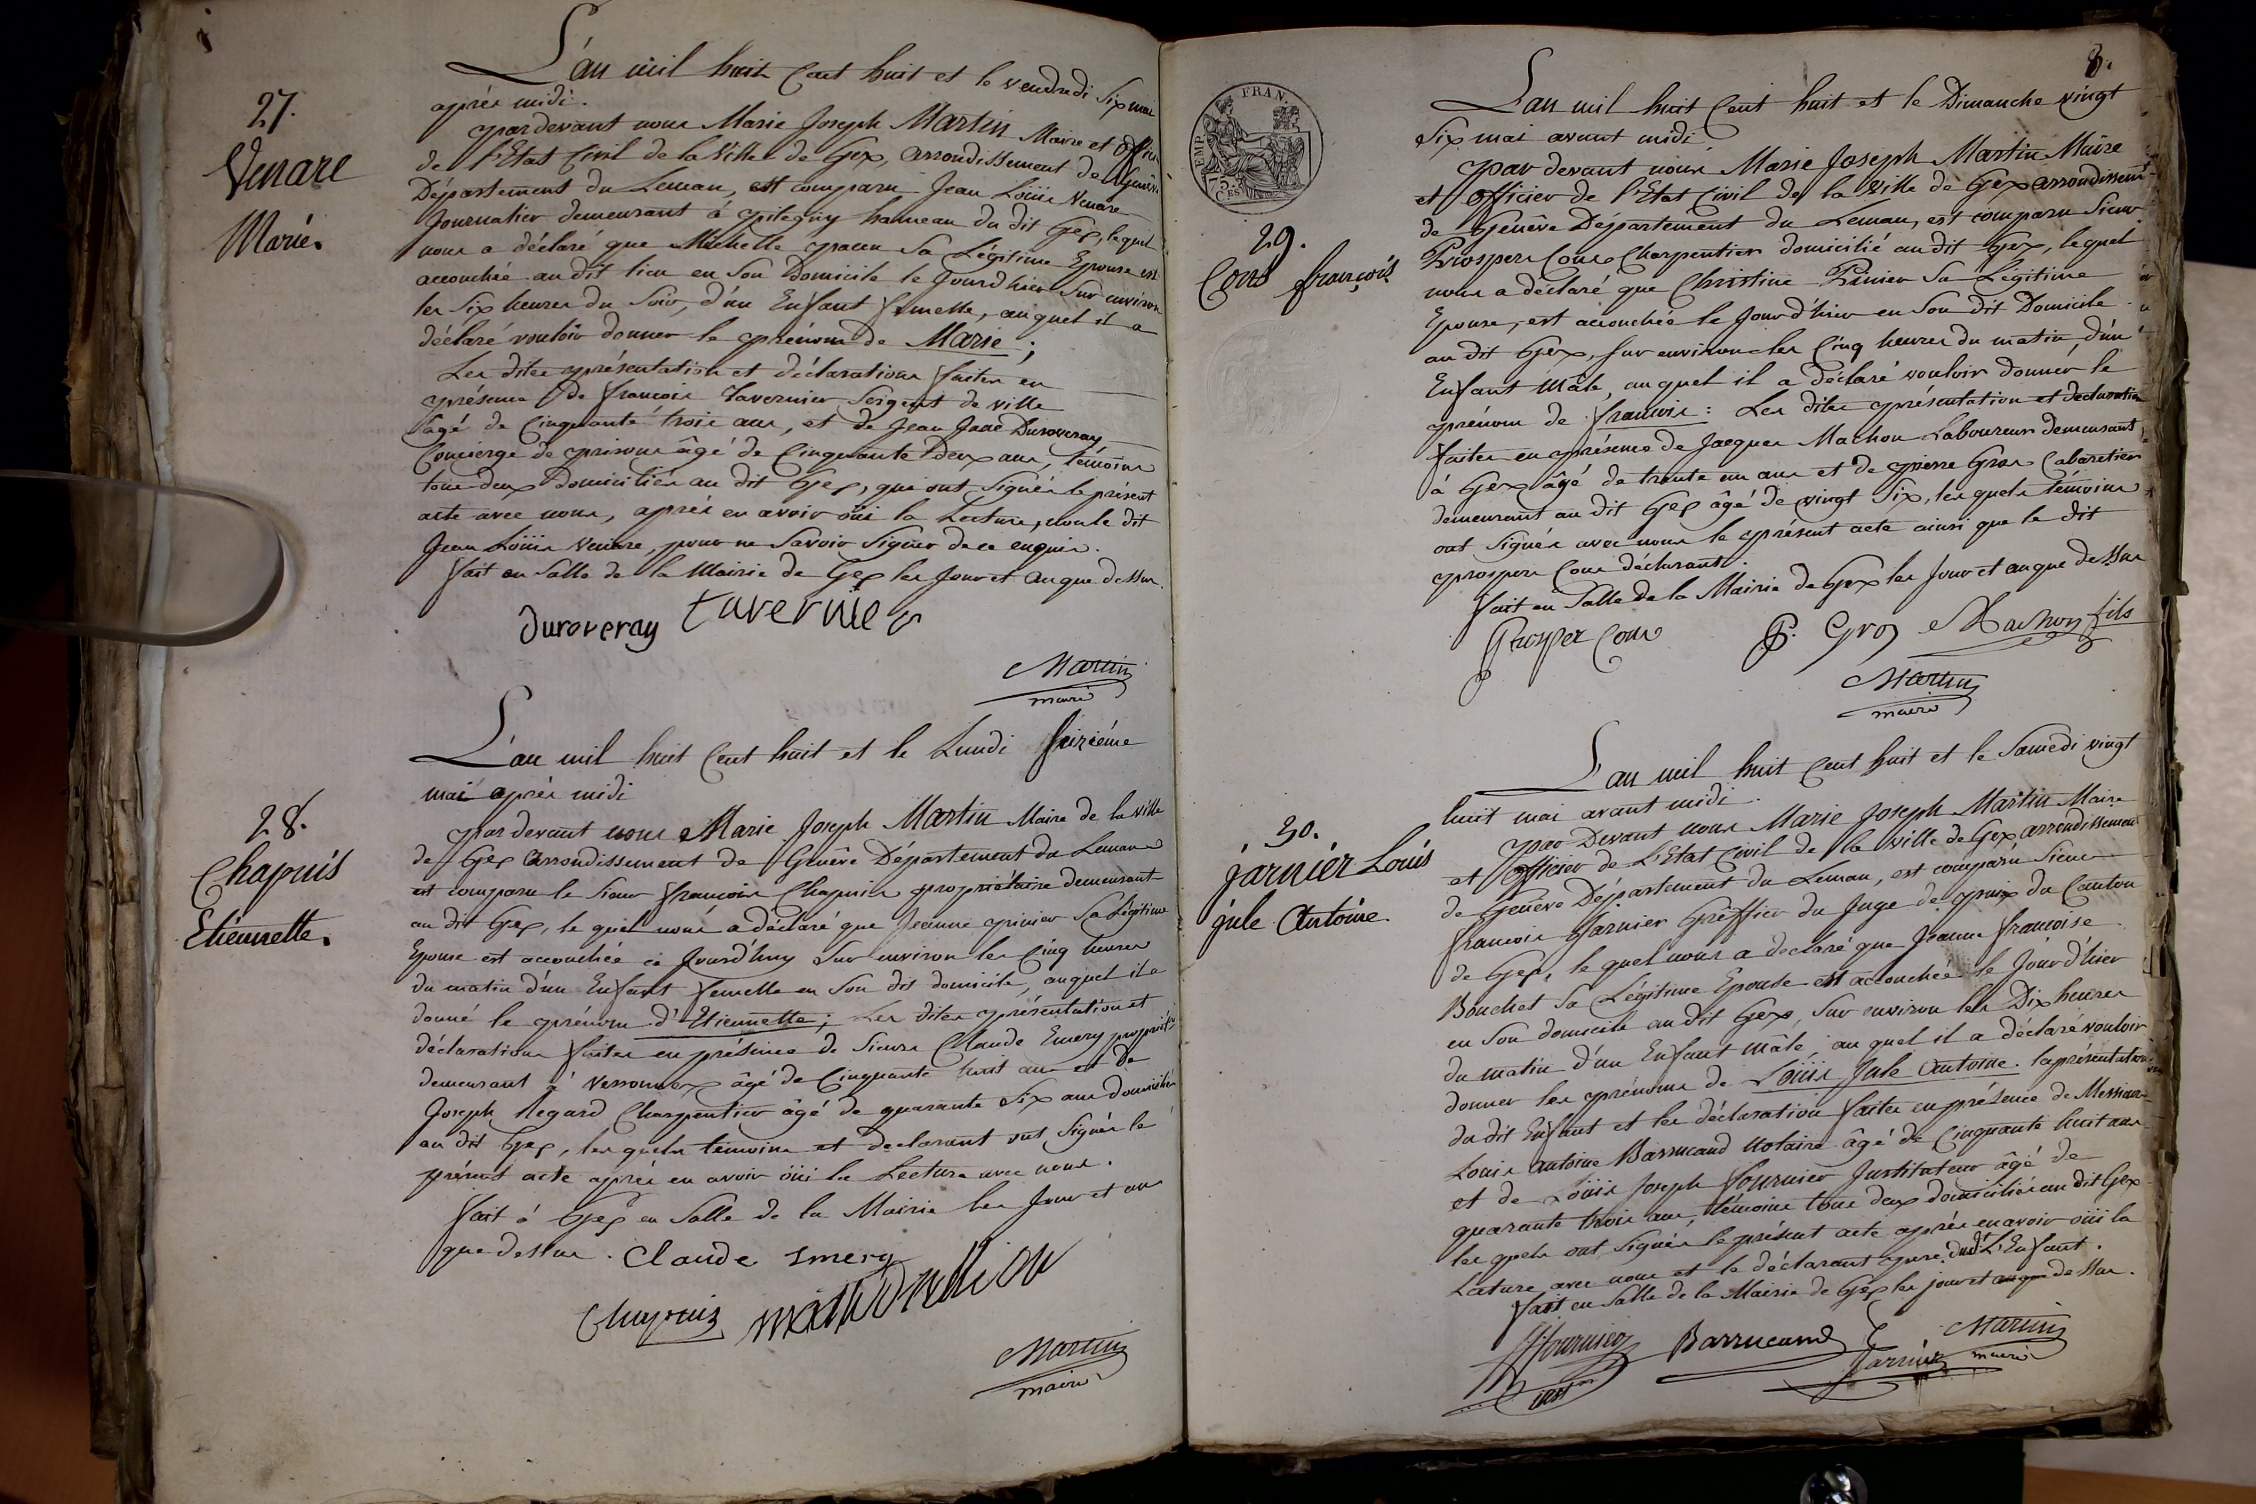 27.
Venare
Marie.
L'an mil huit Cent huit et le vendredi Six mai
après midi.
pardevant nous Marie Joseph Martin Maire et Officier
de l'Etat Civil de la Ville de Gex, arrondissement de Genève
Département du Leman, est comparu Jean Loüis Venare
Journalier demeurant à pitegny hameau du dit Gex, lequel
nous a déclaré que Michelle sa Légitime Epouse est
accouchée au dit lieu en Son Domicile le Jourd'hier Sur environ
les Six heures du Soir, d'un Enfant femelle, auquel il a
déclaré vouloir donner le prénom de Marie ;
Les dites présentation et déclarations faites en
présence de françois Tavernier Sergent de ville
âgé de Cinquante trois ans, et de Jean Duroveray,
Concierge de prisons âgé de Cinquante deux ans, témoins
tous deux Domiciliés au dit Gex, qui ont Signés le présent
acte avec nous, après en avoir oüi la Lecture, non le dit
Jean Loüis Venare, pour ne Savoir Signer de ce enquis.
fait en Salle de la Mairie de Gex les Jour et an que dessus.
Duroveray tavernier
Martin
maire
28.
Chapuis
Etiennette.
L'an mil huit Cent huit et le Lundi Seizième
mai après midi
par devant nous Marie Joseph Martin Maire de la ville
de Gex Arrondissement de Genève Département du Leman
est comparu le Sieur françois Chapuis propriétaire demeurant
au dit Gex, le quel nous a déclaré que Jeanne prinier Sa Légitime
Epouse est accouchée ce Jourd'huy Sur environ les Cinq heures
du matin d'un Enfant femelle en Son dit domicile, auquel il a
donné le prénom d'Etiennette ; Les dites présentation et
déclarations faites en présence de Sieurs Claude Emery propriétaire
demeurant à Versonnex âgé de Cinquante huit ans et de
Joseph Regard Charpentier âgé de quarante Six ans domicilié
au dit Gex, les quels témoins et declarant ont Signés le
présent acte après en avoir oüi la Lecture avec nous.
fait à Gex en Salle de la Mairie les Jour et an
que dessus. Claude Emery
Chapuis
Martin
maire
8.
TIMP. FRAN.
75
29.
Cous françois
L'an mil huit Cent huit et le Dimanche vingt
Six mai avant midi
par devant nous Marie Joseph Martin Maire
et Officier de l'Etat Civil de la Ville de Gex arrondissement
de Genève Département du Leman, est comparu Sieur
Prosper Cous Charpentier domicilié au dit Gex, lequel
nous a déclaré que Christine Prinier Sa Légitime
Epouse, est accouchée le Jour d'hier en Son dit Domicile
au dit Gex, sur environ les Cinq heures du matin, d'un
Enfant mâle, auquel il a déclaré vouloir donner le
prénom de françois : Les dites présentation et declaration
faites en présence de Jacques Machon Laboureur demeurant
à Gex âgé de trente un ans et de pierre Gros Cabaretier
demeurant au dit Gex âgé de vingt Six, les quels témoins
ont Signés avec nous le présent acte ainsi que le dit
prosper Cous déclarant.
fait en Salle de la Mairie de Gex les Jour et an que dessus
Prosper Cous P. Gros Machon fils
Martin
maire
30.
jarnier Louis
jule Antoine.
L'an mil huit Cent huit et le Samedi vingt
huit mai avant midi.
par Devant nous Marie Joseph Martin Maire
et Officier de L'Etat Civil de la ville de Gex arrondissement
de Genève Département du Leman, est comparu Sieur
françois Jarnier Greffier du Juge de paix du Canton
de Gex, le quel nous a declaré que Jeanne françoise
Bouchet Sa Légitime Epouse est accouchée le Jour d'hier
en Son domicile au dit Gex, Sur environ les Dix heures
du matin d'un Enfant mâle, au quel il a déclaré vouloir
donner les prénoms de Loüis Jule Antoine. la présentation
du dit Enfant et les déclaration faites en présence de Messieurs
Louis Antoine Barrucand Notaire âgé de Cinquante huit ans
et de Loüis Joseph fournier Instituteur âgé de
quarante trois ans, témoins tous deux domiciliés au dit Gex
les quels ont Signés le présent acte après en avoir oüi la
Lecture avec nous et le déclarant pere dudt L'Enfant.
fait en Salle de la Mairie de Gex les jour et an que dessus.
fournier Barrucand Jarnier Martin
maire